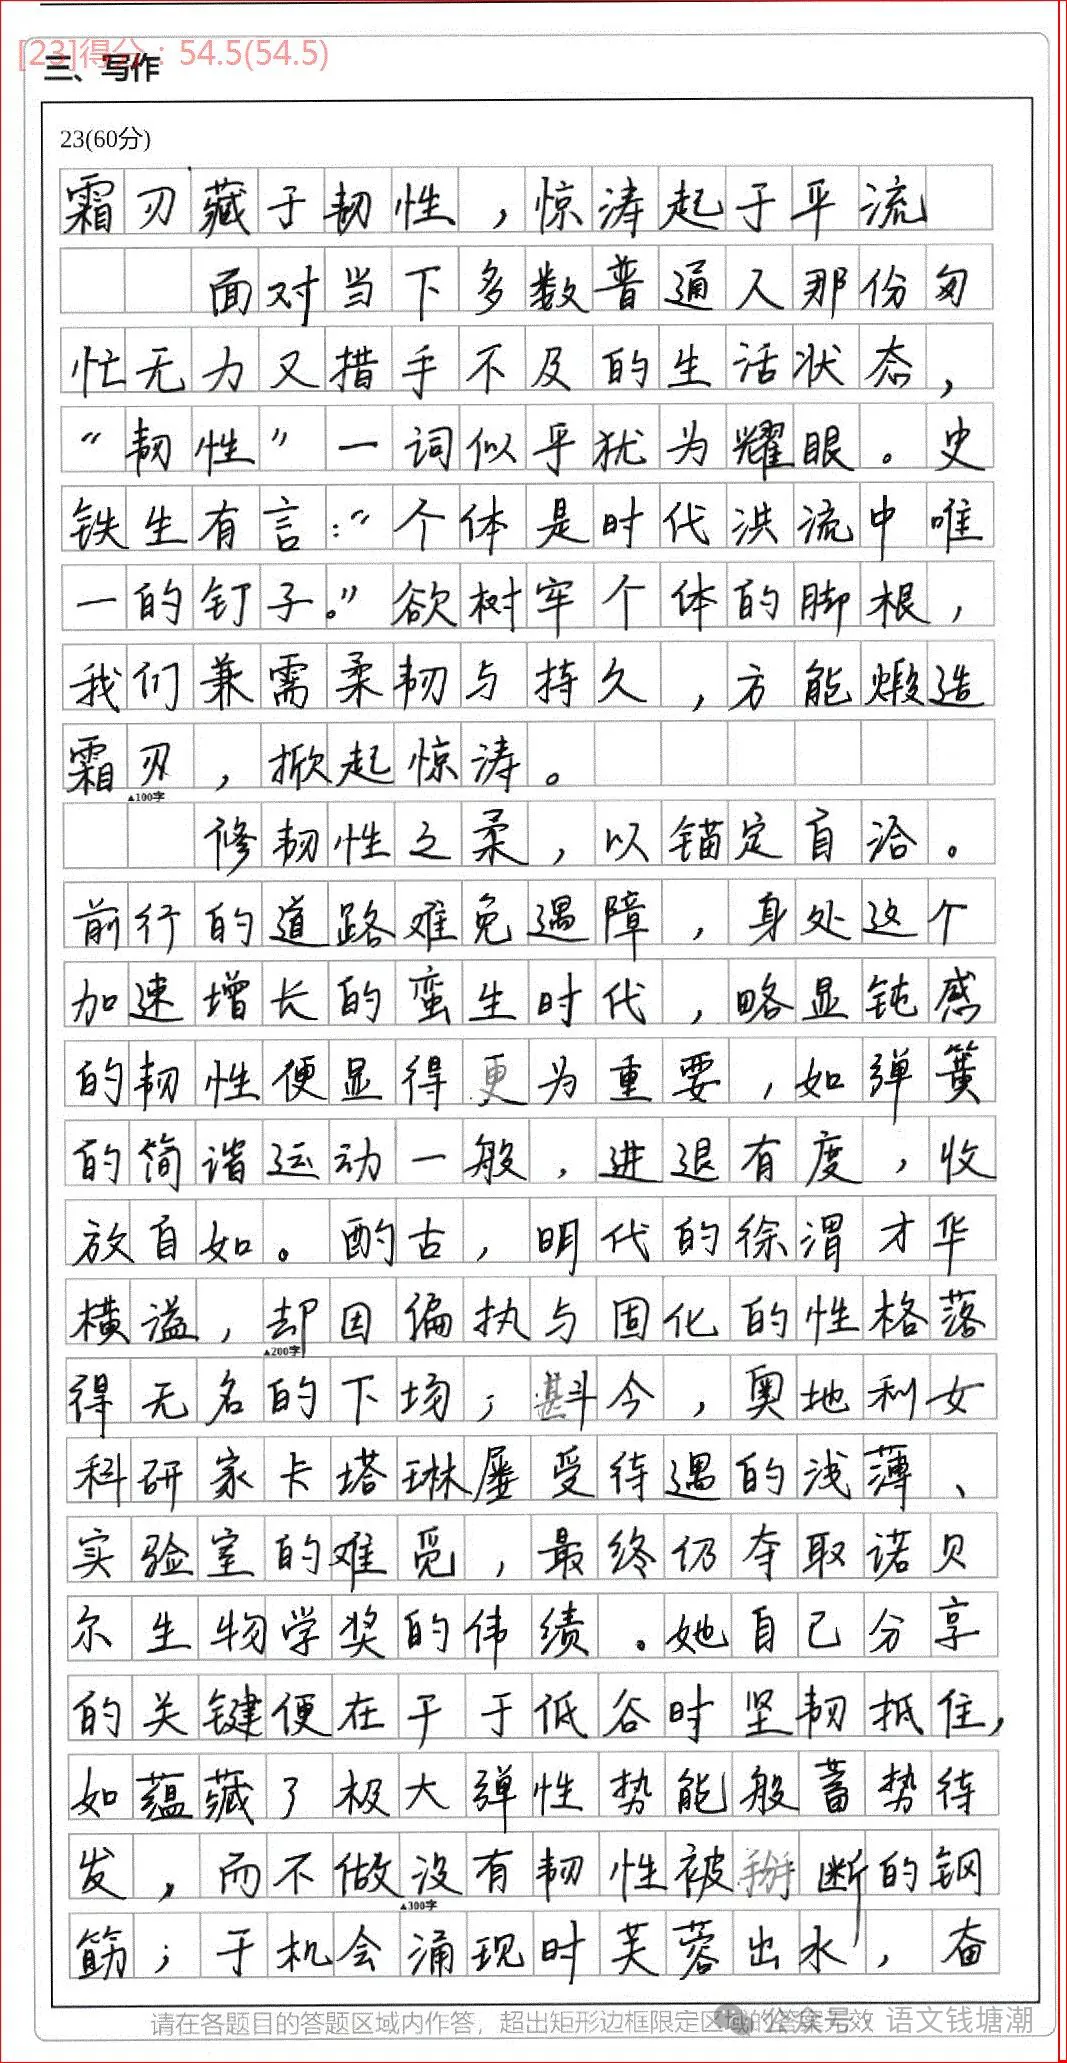 [23]得分：54.5(54.5)
三、写作
23(60分)
霜刃藏于韧性，惊涛起于平流
面对当下多数普通人那份匆
忙无力又措手不及的生活状态，
“韧性”一词似乎犹为耀眼。史
铁生有言：“个体是时代洪流中唯
一的钉子。”欲树牢个体的脚根，
我们兼需柔韧与持久，方能煅造
霜刃，掀起惊涛。
▲100字
修韧性之柔，以锚定自洽。
前行的道路难免遇障，身处这个
加速增长的蛮生时代，略显钝感
的韧性便显得更为重要，如弹簧
的简谐运动一般，进退有度，收
放自如。酌古，明代的徐渭才华
横溢，却因偏执与固化的性格落
▲200字
得无名的下场；斟今，奥地利女
科研家卡塔琳屡受待遇的浅薄、
实验室的难觅，最终仍夺取诺贝
尔生物学奖的伟绩。她自己分享
的关键便在于于低谷时坚韧抵住，
如蕴藏了极大弹性势能般蓄势待
发，而不做没有韧性被掰断的钢
▲300字
筋；于机会涌现时芙蓉出水，奋
请在各题目的答题区域内作答，超出矩形边框限定区域的答案无效
公众号 · 语文钱塘潮